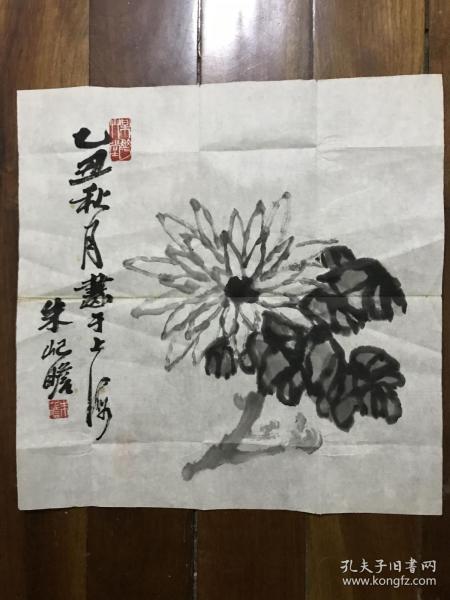 乙丑秋月画于上海
朱屺瞻
孔夫子旧书网
www.kongfz.com